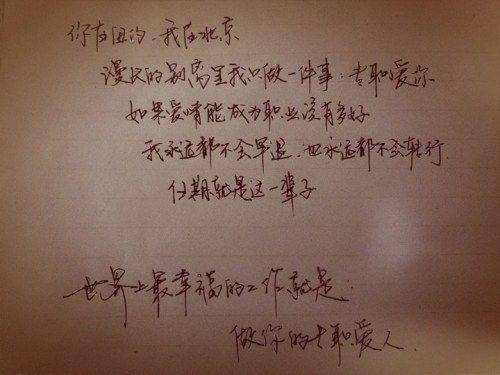 你在纽约,我在北京
漫长的别离里我只做一件事:专职爱你
如果爱情能成为职业没有多好
我永远都不会早退,也永远都不会转行.
任期就是这一辈子
世界上最幸福的工作就是:
做你的专职爱人.